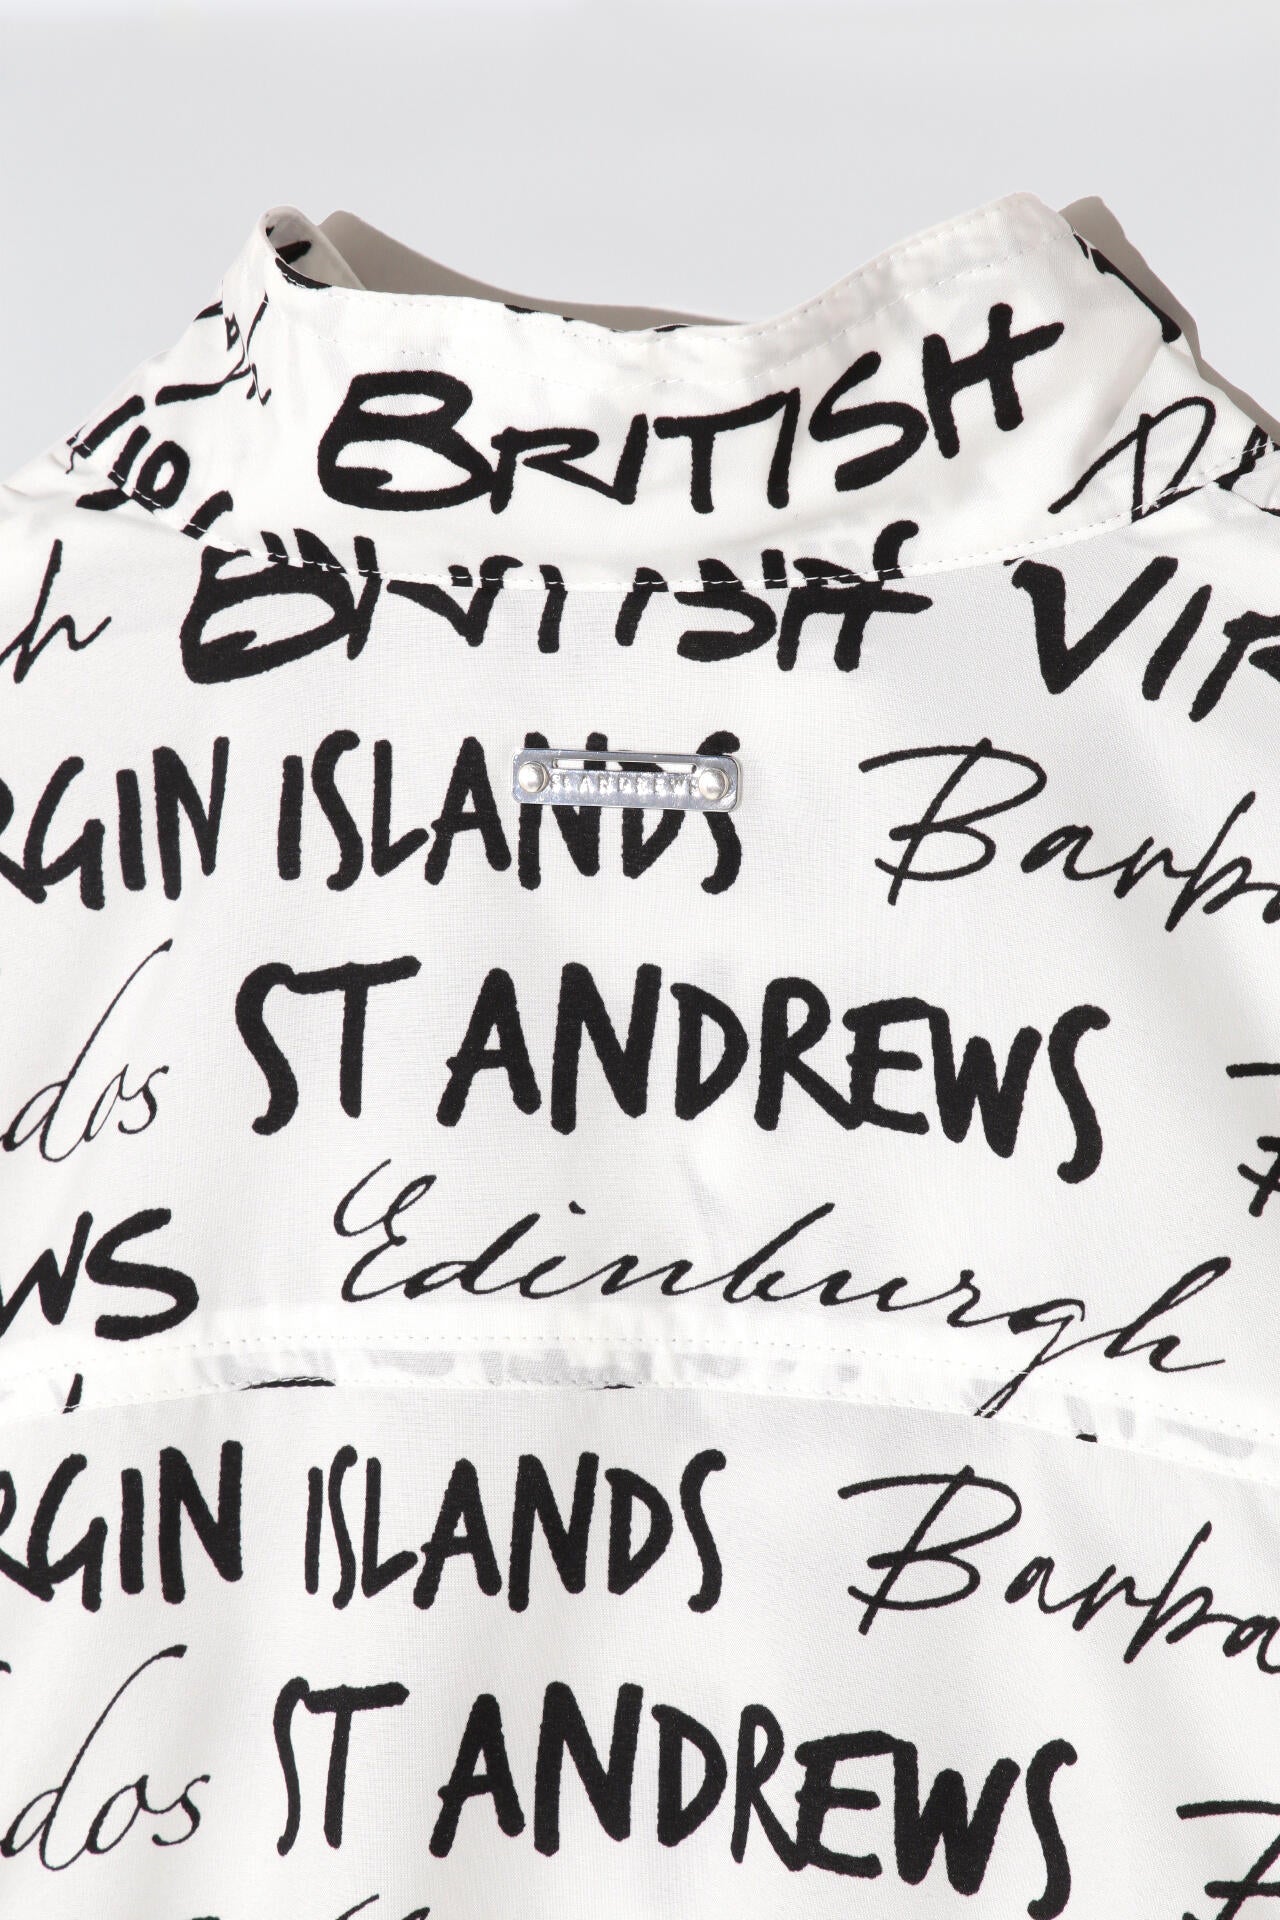 BRITISH
h BRITISH VIR
RGIN ISLANDS Barba
ST.ANDREWS
dos ST ANDREWS
EWS Edinburgh
RGIN ISLANDS Barba
dos ST ANDREWS